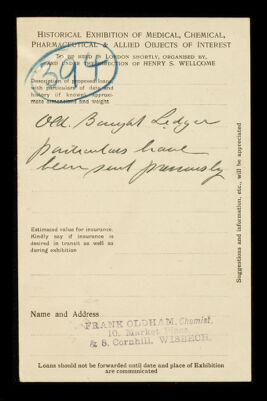 HISTORICAL EXHIBITION OF MEDICAL, CHEMICAL,
PHARMACEUTICAL & ALLIED OBJECTS OF INTEREST
TO BE HELD IN LONDON SHORTLY, ORGANISED BY,
AND UNDER THE DIRECTION OF HENRY S. WELLCOME
394
Description of proposed loans
with particulars of date and
history (if known) approxi-
mate dimensions and weight
Old Bought Ledger
particulars have
been sent previously
Estimated value for insurance.
Kindly say if insurance is
desired in transit as well as
during exhibition
Suggestions and information, etc., will be appreciated
Name and Address
FRANK OLDHAM, Chemist,
10, Market Place,
& 8, Cornhill, WISBECH.
Loans should not be forwarded until date and place of Exhibition
are communicated